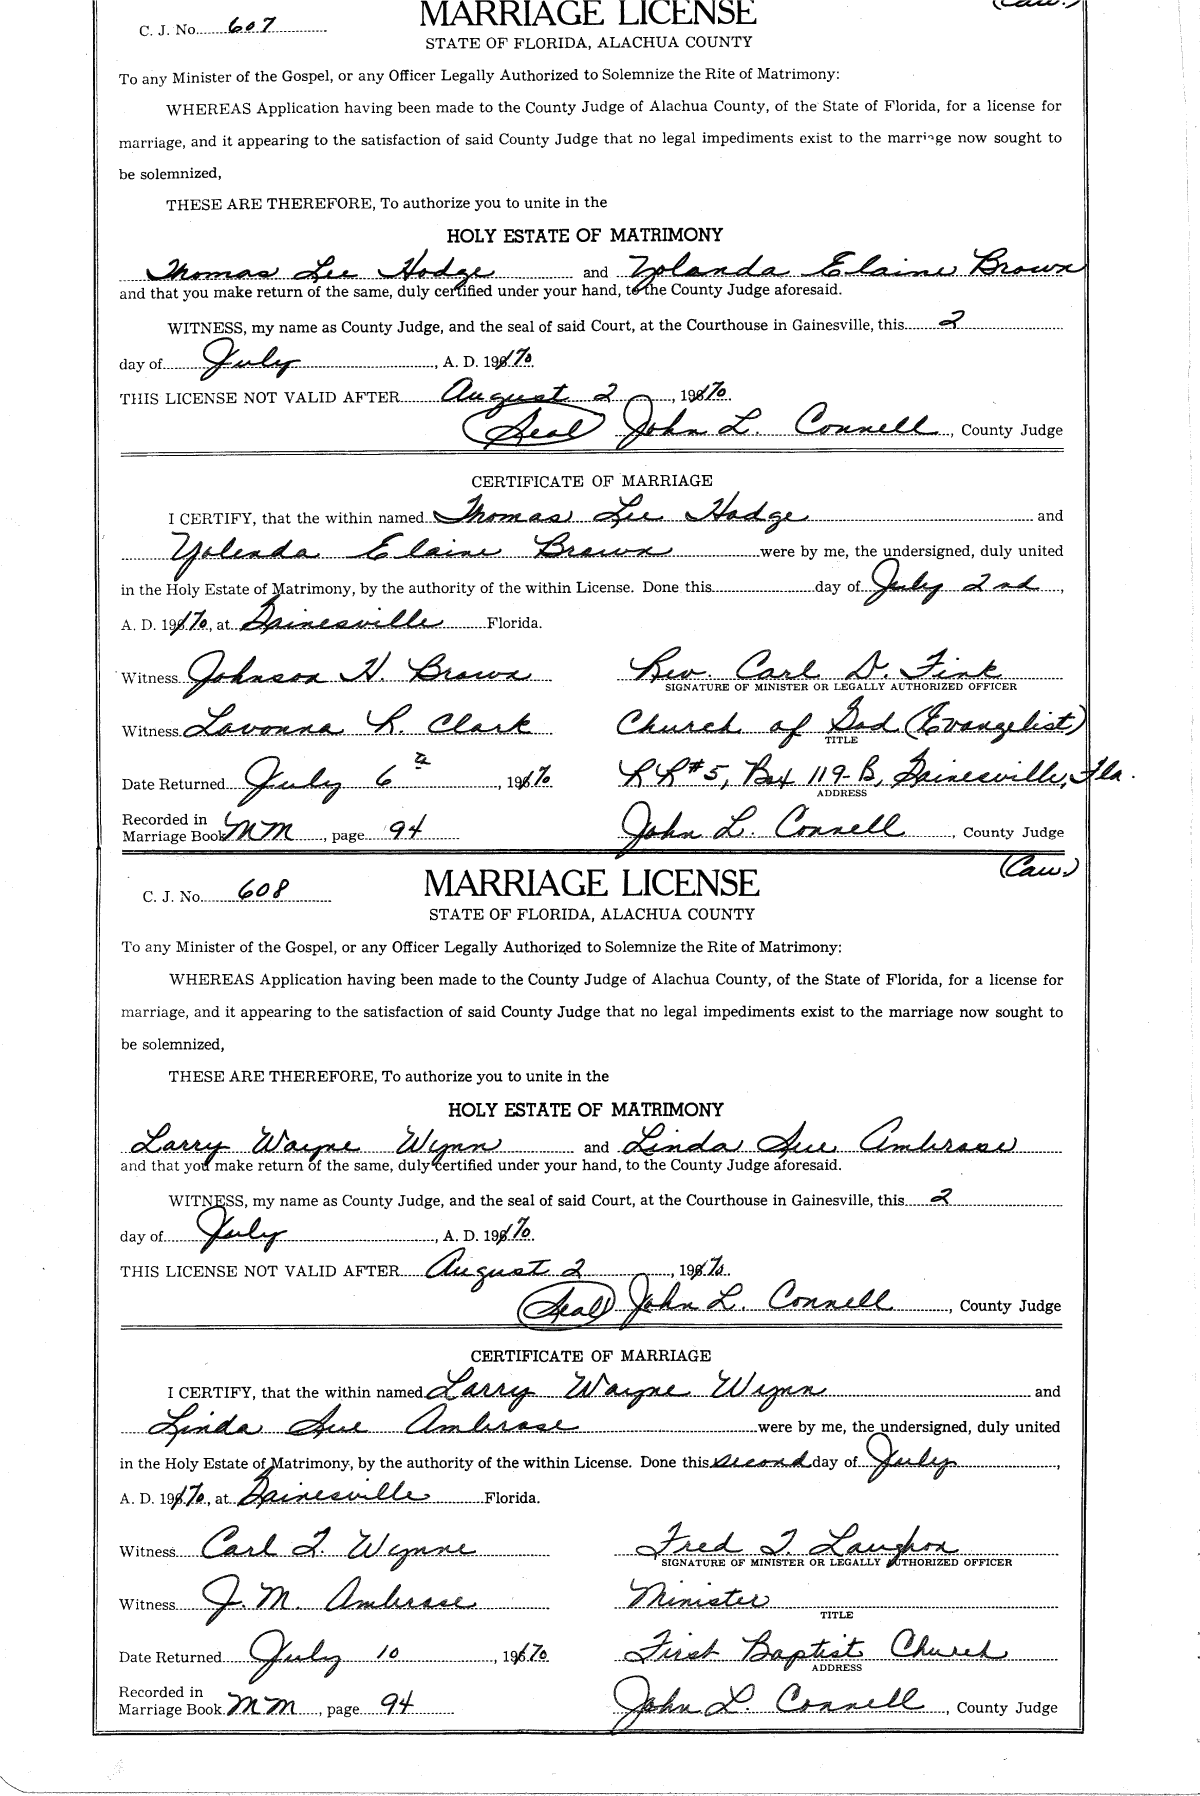 C. J. No. 607
MARRIAGE LICENSE
(Caw.)
STATE OF FLORIDA, ALACHUA COUNTY
To any Minister of the Gospel, or any Officer Legally Authorized to Solemnize the Rite of Matrimony:
WHEREAS Application having been made to the County Judge of Alachua County, of the State of Florida, for a license for
marriage, and it appearing to the satisfaction of said County Judge that no legal impediments exist to the marriage now sought to
be solemnized,
THESE ARE THEREFORE, To authorize you to unite in the
HOLY ESTATE OF MATRIMONY
Thomas Lee Hodge and Yolanda Elaine Brown
and that you make return of the same, duly certified under your hand, to the County Judge aforesaid.
WITNESS, my name as County Judge, and the seal of said Court, at the Courthouse in Gainesville, this 2
day of July, A. D. 1970.
THIS LICENSE NOT VALID AFTER August 2, 1970.
(Seal) John L. Connell, County Judge
CERTIFICATE OF MARRIAGE
I CERTIFY, that the within named Thomas Lee Hodge and
Yolenda Elaine Brown were by me, the undersigned, duly united
in the Holy Estate of Matrimony, by the authority of the within License. Done this day of July 2nd,
A. D. 1970, at Gainesville Florida.
Witness Johnson H. Brown Rev. Carl D. Fink
SIGNATURE OF MINISTER OR LEGALLY AUTHORIZED OFFICER
Witness Lavonna R. Clark Church of God (Evangelist)
TITLE
Date Returned July 6th, 1970 RR#5, Box 119-B, Gainesville, Fla.
ADDRESS
Recorded in
Marriage Book MM, page 94 John L. Connell, County Judge
(Caw.)
C. J. No. 608
MARRIAGE LICENSE
STATE OF FLORIDA, ALACHUA COUNTY
To any Minister of the Gospel, or any Officer Legally Authorized to Solemnize the Rite of Matrimony:
WHEREAS Application having been made to the County Judge of Alachua County, of the State of Florida, for a license for
marriage, and it appearing to the satisfaction of said County Judge that no legal impediments exist to the marriage now sought to
be solemnized,
THESE ARE THEREFORE, To authorize you to unite in the
HOLY ESTATE OF MATRIMONY
Larry Wayne Wynn and Linda Sue Ambrose
and that you make return of the same, duly certified under your hand, to the County Judge aforesaid.
WITNESS, my name as County Judge, and the seal of said Court, at the Courthouse in Gainesville, this 2
day of July, A. D. 1970.
THIS LICENSE NOT VALID AFTER August 2, 1970.
(Seal) John L. Connell, County Judge
CERTIFICATE OF MARRIAGE
I CERTIFY, that the within named Larry Wayne Wynn and
Linda Sue Ambrose were by me, the undersigned, duly united
in the Holy Estate of Matrimony, by the authority of the within License. Done this second day of July,
A. D. 1970, at Gainesville Florida.
Witness Carl T. Wynne Fred T. Laughon
SIGNATURE OF MINISTER OR LEGALLY AUTHORIZED OFFICER
Witness J. M. Ambrose Minister
TITLE
Date Returned July 10, 1970 First Baptist Church
ADDRESS
Recorded in
Marriage Book MM, page 94 John L. Connell, County Judge